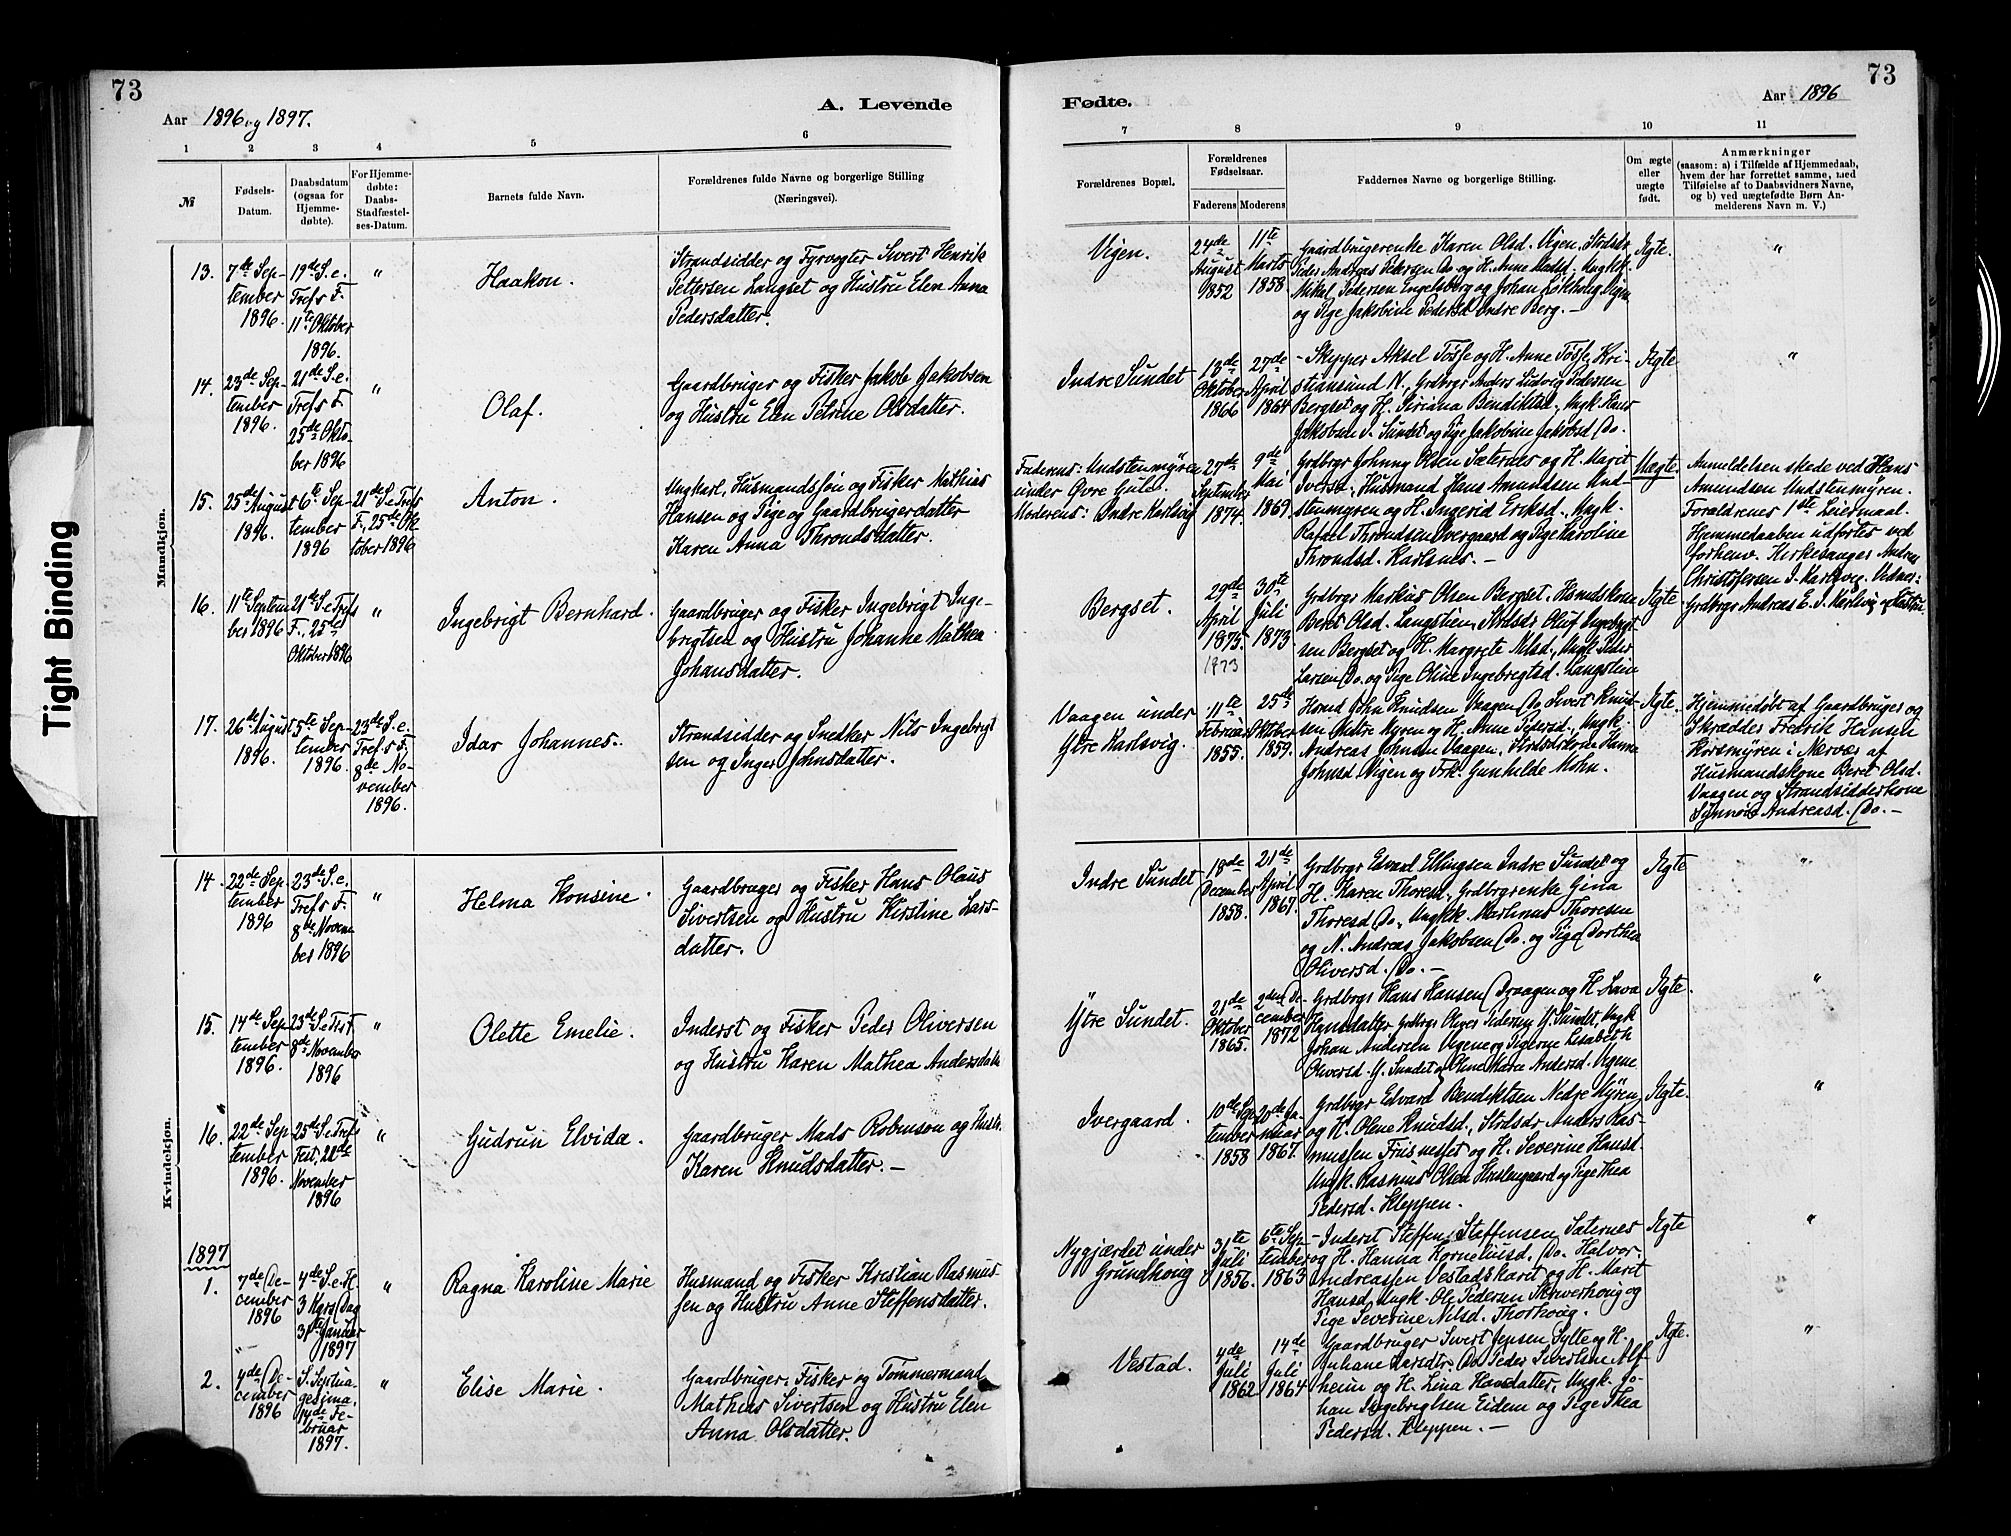 73
Aar 1896 og 1897.
A. Levende
1 2 3 4 5 6
№
Fødsels-
Datum.
Daabsdatum
(ogsaa for
Hjemme-
døbte).
For Hjemme-
døbte:
Daabs-
Stadfæstel-
ses-Datum.
Barnets fulde Navn.
Forældrenes fulde Navne og borgerlige Stilling
(Næringsvei).
Mandkjøn.
13.
7de Sep-
tember
1896.
19de S. e.
Trefs F.
11te Oktober
1896.
"
Haakon.
Strandsidder og Fyrvogter Sivert Henrik
Pettersen Langset og Hustru Elen Anna
Pedersdatter.
14.
23de Sep-
tember
1896.
21de S. e.
Trefs F.
25de Okto-
ber 1896
"
Olaf.
Gaardbruger og Fisker Jakob Jakobsen
og Hustru Elen Petrine Olsdatter.
15.
25de August
1896.
6te Sep-
tember
1896
21de S. e. Trefs
F., 25de Ok-
tober 1896
Anton.
Ungkarl, Husmandssøn og Fisker Mathias
Hansen og Pige og Gaardbrugerdatter
Karen Anna Throndsdatter.
16.
11te Septem-
ber 1896
21de S. e. Trefs
F., 25de
Oktober 1896
"
Ingebrigt Bernhard.
Gaardbruger og Fisker Ingebrigt Inge-
brigtsen og Hustru Johanne Mathea
Johansdatter.
17.
26de August
1896.
5te Sep-
tember
1896.
23de S. e.
Trefs F.,
8de No-
vember
1896.
Idar Johannes.
Strandsidder og Snedker Nils Ingebrigt
sen og Inger Johnsdatter.
Kvindekjøn.
14.
22de Sep-
tember
1896
23de S. e.
Trefs F.
8de Novem
ber 1896
"
Helma Konsine.
Gaardbruger og Fisker Hans Olaus
Sivertsen og Hustru Kirstine Lars-
datter.
15.
14de Sep-
tember
1896.
23de S. e. Tref
8de November
1896
"
Olette Emelie.
Inderst og Fisker Peder Oliversen
og Hustru Karen Mathea Andersdatt
16.
22de Sep-
tember
1896.
25de S. e. Trefs
Fest, 22de
November
1896
"
Gudrun Elvida.
Gaardbruger Mads Robinson og Hustr.
Karen Knudsdatter. —
1897
1.
7de De-
cember
1896
4de S. e. H.
3 Kgrs Dag
31te Januar
1897
"
Ragna Karoline Marie
Husmand og Fisker Kristian Rasmus-
sen og Hustru Anne Steffensdatter.
2.
4de De-
cember
1896
S. Septua-
gesima,
14de Fe-
bruar
1897.
"
Elise Marie.
Gaardbruger, Fisker og Tømmermand
Mathias Sivertsen og Hustru Elen
Anna Olsdatter.
Tight Binding
Fødte.
Aar 1896
73
7 8 9 10 11
Forældrenes Bopæl.
Forældrenes
Fødselsaar.
Faderens Moderens
Faddernes Navne og borgerlige Stilling.
Om ægte
eller
uægte
født.
Anmærkninger
(saasom: a) i Tilfælde af Hjemmedaab,
hvem der har forrettet samme, med
Tilføielse af to Daabsvidners Navne,
og b) ved uægtefødte Børn An-
melderens Navn m. V.)
Vigen.
24de
August
1852
11te
Marts
1858
Gaardbrugerenke Karen Olsd. Vigen, Strdsdr
Peder Andreas Pedersen Do og H. Anne Madsd. Ungkk.
Mikal Pedersen Engelsberg og Johan Vigen
og Pige Jakobine Pedersd Indre Berg. —
Ægte.
"
Indre Sundet
18de
Oktober
1866
27de
April
1864
- Skipper Aksel Tøsse og H. Anne Tøsse, Kri-
stiansund N., Grdbrgr Anders Ludvig Pedersen
Bergset og H. Siriana Bendiktsd., Ungk. Hans
Jakobsen I. Sundet og Pige Jakobine Jakobsd Do.
Ægte
"
Faderens: Undstenmyren
under Øvre Gule.
Moderens: Indre Karlsvig
27de
September
1874.
9de
Mai
1869.
Grdbrgr Johnny Olsen Sæternes og H. Marit
Iversd., Husmand Hans Amundsen Und-
stenmyren og H. Ingerid Eriksd., Ungk.
Rafael Throndsen Overgaard og Pige Karoline
Throndsd. Karlsnes. —
Uægte.
Anmeldelsen skede ved Hans
Amundsen Undstenmyren.
Forældrenes 1ste Leiermaal.
Hjemmedaaben udførtes ved
forhenv. Kirkesanger Andreas
Christofersen I. Karlsvig. Vidner:
Grdbrgr Andreas E. I. Karlsvig og Hustru.
Bergset.
29de
April
1875.
1873
30te
Juli
1873.
Grdbrgr Markus Olsen Bergset. Husmdskone
Beret Olsd. Langstien, Strdsdr Oluf Ingebrigt-
sen Bergset og H. Margrete Nilsd., Ungk. Peder
Larsen Do. og Pige Oline Ingebregtsd. Langstien
Ægte.
Vaagen under
Ytre Karlsvig.
11te
Februar
1855.
25de
Oktober
1859.
Husmd John Knudsen Vaagen, Do Sivert Knud-
sen Andre Myren og H. Anne Pedersd., Ungk.
Andreas Johnsen Vaagen, Strdsdrkone Hanna
Johnsd. Vigen og Frk. Gunhilde Mohn.
Ægte.
Hjemmedøbt af Gaardbruger og
Skrædder Fredrik Hansen
Korsmyren i Nærvær af
Husmandskone Beret Olsd.
Vaagen og Strandsidderkone
Synnøve Andreasd. Do. —
Indre Sundet
18de
December
1858.
21de
April
1867.
Grdbrgr Edvard Ellingsen Indre Sundet og
H. Karen Thoresd., Grdbrgrenke Gina
Thoresd Do., Ungkk. Martinus Thoresen
og N. Andreas Jakobsen Do. og Pige Dorthea
Oliversd. Do. —
Ægte
"
Ytre Sundet.
21de
Oktober
1865.
2den De-
cember
1872
Grdbrgr Hans Hansen Draagen og H. Lava
Hansdatter, Grdbrgr Oliver Pedersen Y. Sundet, Ungk
Johan Andersen Vigene og Pigerne Lisabeth
Oliversd. Y. Sundet og Oline Marie Andersd. Vigene
Ægte.
"
Ivergaard.
10de Sep-
tember
1858
20de Ja-
nuar
1867.
Grdbrgr Edvard Bendiktsen Nedre Myren
og H. Olene Knudsd., Strdsdr Anders Ras-
mussen Frisneset og H. Severine Hansd.
Ungk. Rasmus Olsen og Pige Thea
Pedersd. Kleppen.
Ægte.
"
Nygjærdet under
Grundhoug
31te
Juli
1856.
6te Sep-
tember
1863
- Inderst Steffen Steffensen Sæternes
og H. Hanna Korneliusd., Do. Halvor
Andreassen Vestadskaret og H. Marit
Hansd., Ungk. Ole Pedersen Skriverhoug og
Pige Severine Nilsd. Thorhoug.
Ægte
"
Vestad.
4de
Juli
1862
14de
Juli
1864
Gaardbruger Sivert Jensen Sylte og H.
Juliane Larsdtr., Do Peder Sivertsen Alf-
heim og H. Lina Hansdatter, Ungk. Jo-
han Ingebrigtsen Eidem og Pige Thea
Pedersd. Kleppen. —
Ægte.
"